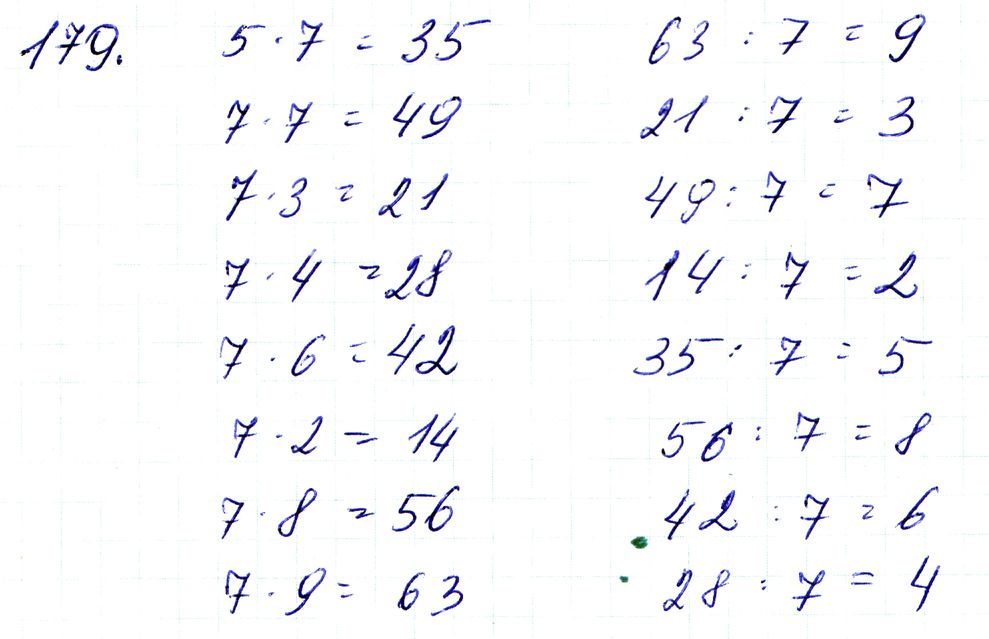 179. 5 · 7 = 35 63 : 7 = 9
7 · 7 = 49 21 : 7 = 3
7 · 3 = 21 49 : 7 = 7
7 · 4 = 28 14 : 7 = 2
7 · 6 = 42 35 : 7 = 5
7 · 2 = 14 56 : 7 = 8
7 · 8 = 56 42 : 7 = 6
7 · 9 = 63 28 : 7 = 4